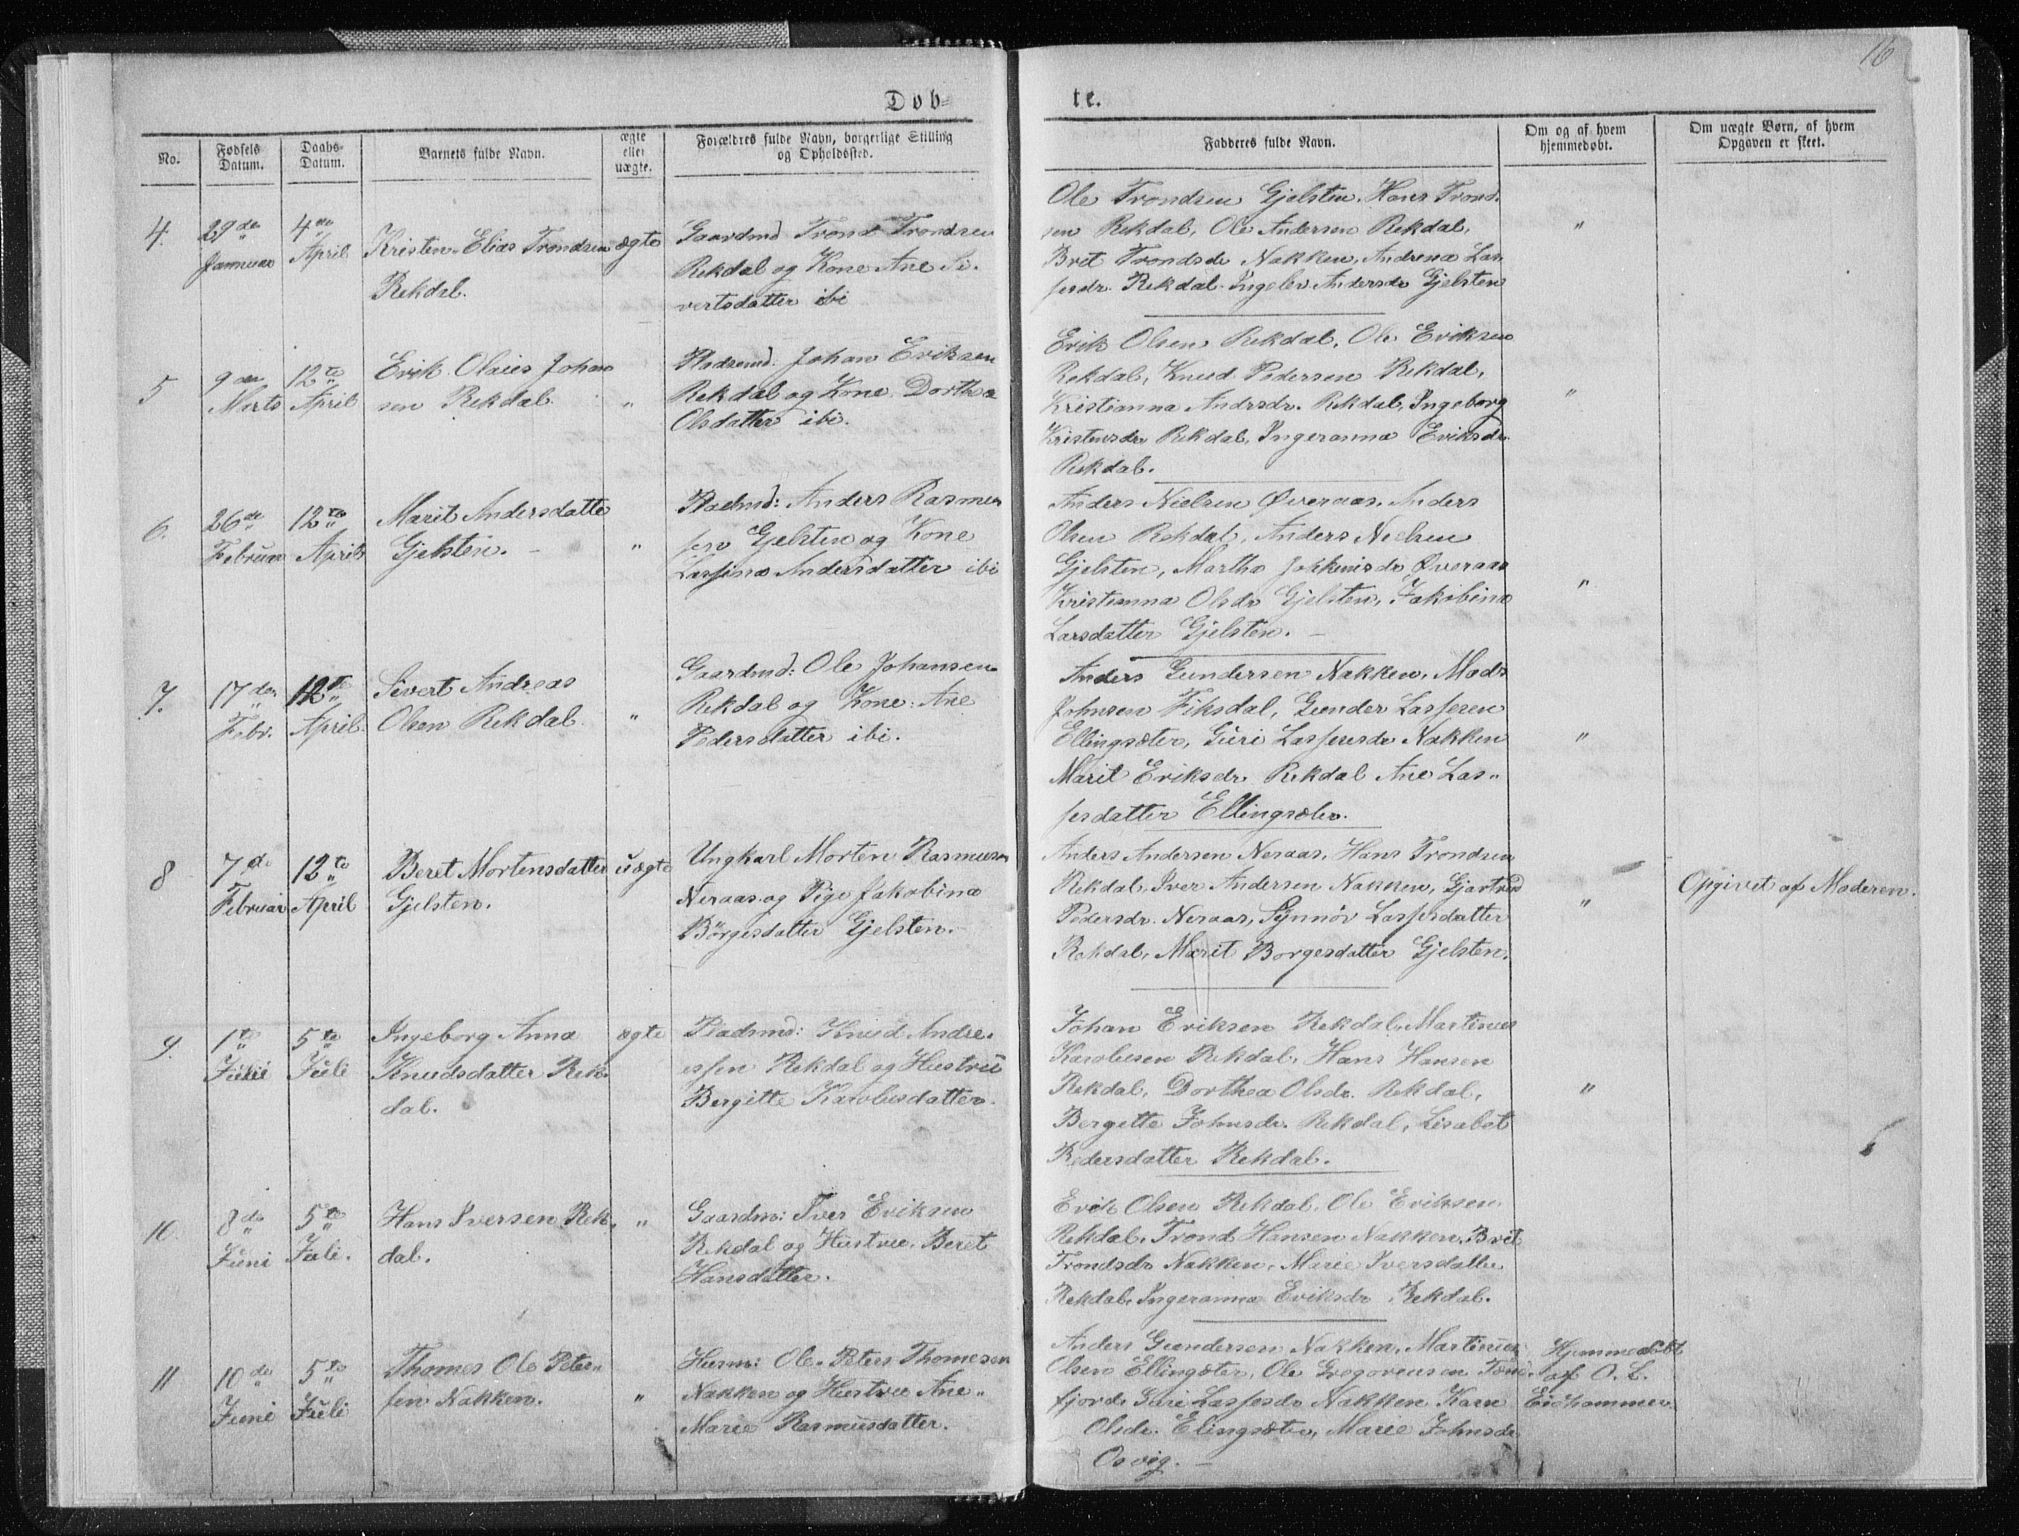 16
Døb-
te.
No.
Fødsels Datum.
Daabs-Datum.
Barnets fulde Navn.
ægte eller uægte.
Forældres fulde Navn, borgerlige Stilling og Opholdssted.
Fadderes fulde Navn.
Om og af hvem hjemmedøbt.
Om uægte Børn, af hvem Opgaven er skeet.
4.
29de
Januar
4de
April
Kristen Elias Trondsen
Rekdal.
ægte
Gaardmd Trond Trondsen
Rekdal og Kone Ane Si-
vertsdatter ibi
Ole Trondsen Gjelsten, Hans Trond-
sen Rekdal, Ole Andersen Rekdal,
Brit Trondsdr Nakken, Andrena Las
sesdr. Rekdal. Ingelev Andersdr Gjelsten
"
5
9de
Marts
12te
April
Erik Olaus Johan
sen Rekdal.
"
Pladsmd. Johan Eriksen
Rekdal og Kone Dorthea
Olsdatter ibi.
Erik Olsen Rekdal, Ole Eriksen
Rekdal, Knud Pedersen Rekdal,
Kristianna Andrsdr. Rekdal, Ingeborg
Kristensdr Rekdal, Ingeranna Eriksdr.
Rekdal.
"
6.
26de
Februar
12te
April
Marit Andersdatte
Gjelsten. -
"
Pladsmd: Anders Rasmus
sen Gjelsten og Kone
Lassina Andersdatter ibi
Anders Nielsen Øveraas, Anders
Olsen Rekdal, Anders Nielsen
Gjelsten, Martha Jokkimsdr Øveraas
Kristianna Olsdr Gjelsten, Jakobina
Larsdatter Gjelsten. -
"
7.
17den
Febr.
12te
April.
Sivert Andreas
Olsen Rekdal
"
Gaardmd: Ole Johansen
Rekdal og Kone: Ane
Pedersdatter ibi.
Anders Gundersen Nakken, Mads
Johnsen Fiksdal, Gunder Lassesen
Ellingsæter, Guri Lassesdr Nakken
Marit Eriksdr Rekdal Ane Las-
sesdatter Ellingsæter.
"
8
7de
Februar
12te
April
Beret Mortensdatter
Gjelsten.
uægte
Ungkarl Morten Rasmusen
Neraas og Pige Jakobina
Börgesdatter Gjelsten.
Anders Andersen Neraas, Hans Trondsen
Rekdal, Iver Andersen Nakken, Gjartrud
Pedersdr. Neraas, Synnöv Lassesdatter
Rekdal, Marit Borgesdatter Gjelsten.
"
Opgivet af Moderen.
9.
1te
Juni
5te
Juli
Ingeborg Anna
Knudsdatter Rek-
dal.
ægte
Pladsmd: Knud Andre-
assen Rekdal og Hustru
Bergitte Karolusdatter.
Johan Eriksen Rekdal, Martinus
Karolusen Rekdal, Hans Hansen
Rekdal, Dorthea Olsdr. Rekdal,
Bergette Johnsdr. Rekdal, Lisabet
Pedersdatter Rekdal.
"
10.
8de
Juni
5te
Juli.
Hans Iversen Rek-
dal.
"
Gaardm: Iver Eriksen
Rekdal og Hustru Beret
Hansdatter.
Erik Olsen Rekdal, Ole Eriksen
Rekdal, Trond Hansen Nakken, Brit
Trondsdr Nakken, Marie Iversdatter
Rekdal, Ingeranna Eriksdr Rekdal.
11
10de
Juni
5te
Juli
Thomas Ole Peter-
sen Nakken.
"
Husm: Ole Peter Thomesen
Nakken og Hustru Ane-
Marie Rasmusdatter.
Anders Gundersen Nakken, Martinus
Olsen Ellingæter, Ole Gregoreusen
fjord, Guri Lassesdr Nakken Karn
Olsdr. Elingsæter, Marie Johnsdr
Osvig. -
Hjemmedöbt
af O. L.
Eidhammer.